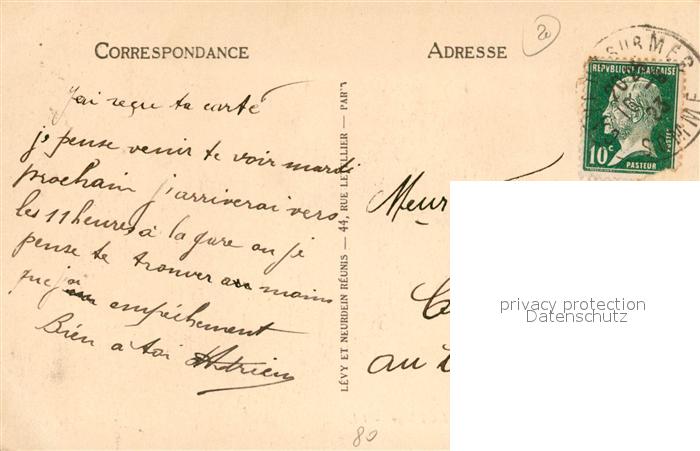 CORRESPONDANCE
ADRESSE
20
J'ai reçue ta carte
je pense venir te voir mardi
prochain j'arriverai vers
les 11 heures à la gare ou je
pense te trouver a moins
que j'ai empéchement
Bien à toi Adrien
LÉVY ET NEURDEIN RÉUNIS — 44, RUE LETELLIER — PARIS
SUR MER
RÉPUBLIQUE FRANÇAISE
10c
POSTES
PASTEUR
Meur
au
privacy protection
Datenschutz
80